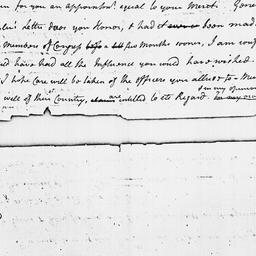 for you an appointmt equal to your Merit. Gene
Letter does you Honor, & had it been mad
Members of Congress a two Months sooner, I am conf
had all the Influence you could have wished.
I hope Care will be taken of the Officers you allude to
in my opinion
well of their Country, are intitled to its Regard.